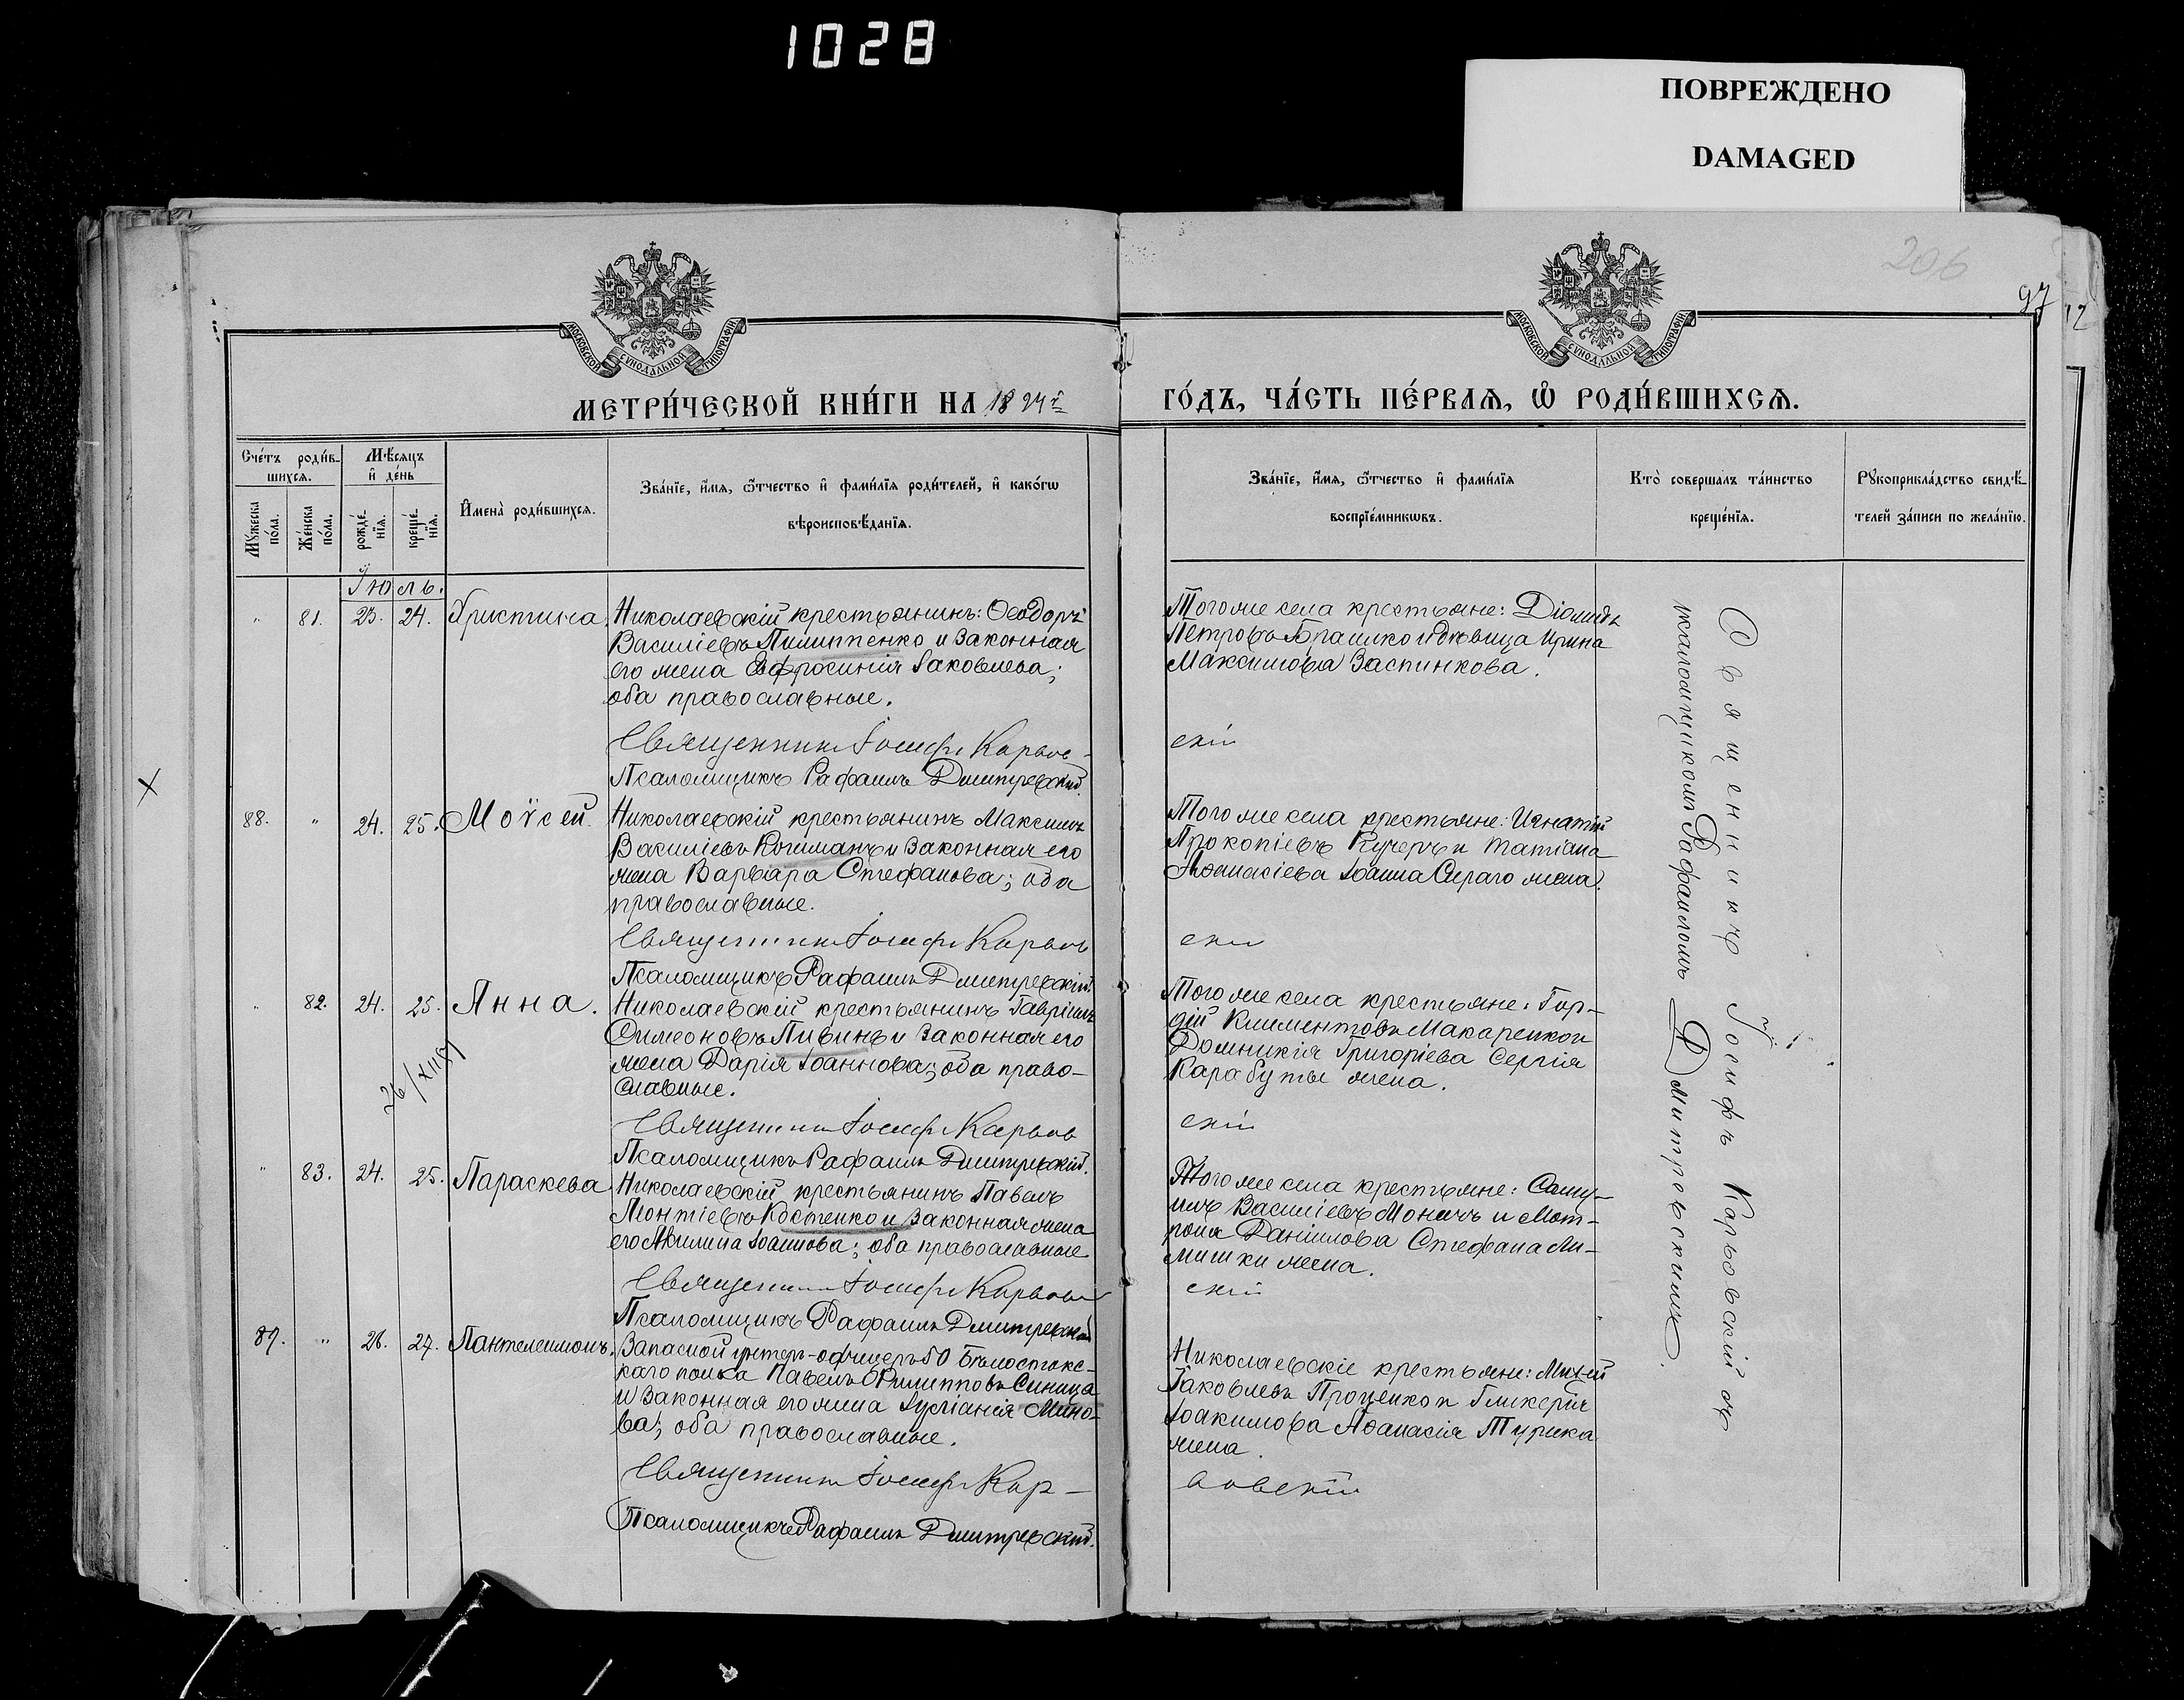 1028
ПОВРЕЖДЕНО
DAMAGED
206
97
12
МОСКОВСКОЙ СѴНОДАЛЬНОЙ ТИПОГРАФІИ
МОСКОВСКОЙ СѴНОДАЛЬНОЙ ТИПОГРАФІИ
МЕТРИ́ЧЕСКОЙ КНИ́ГИ НА 1894й
ГО́ДЪ, ЧА́СТЬ ПЕ́РВАѦ, Ѡ҆ РОДИ́ВШИХСѦ.
Сче́тъ роди́в-
шихсѧ.
Мѣ́сѧцъ
и҆ де́нь
Мꙋ́жеска по́ла.
Же́нска по́ла.
рожде́-нїѧ.
креще́-нїѧ.
И҆мена̀ роди́вшихсѧ.
Зва́нїе, и҆́мѧ, ѻ҆́тчество и҆ фами́лїѧ роди́телей, и҆ како́гѡ
вѣроисповѣ́данїѧ.
Зва́нїе, и҆́мѧ, ѻ҆́тчество и҆ фами́лїѧ
воспрїе́мникѡвъ.
Кто̀ соверша́лъ та́инство
креще́нїѧ.
Рꙋкоприкла́дство свидѣ́-
телей за́писи по жела́нїю.
Іюль.
" 81. 23. 24. Христина.
Николаевскій крестьянинъ: Ѳеодоръ
Василіевъ Пилиппенко и законная
его жена Евфросинія Іаковлева;
оба православные.
Священникъ Іосифъ Карьов-
Псаломщикъ Рафаилъ Дмитревскій.
Того же села крестьяне: Діомидъ
Петровъ Брашко и вдовица Ирина
Максимова Заспинкова.
скій
88. " 24. 25. Моѵсей.
Николаевскій крестьянинъ Максимъ
Василіевъ Кошманъ и законная его
жена Варвара Стефанова; оба
православные.
Священникъ Іосифъ Карьов
Псаломщикъ Рафаилъ Дмитревскій.
Того же села крестьяне: Игнатій
Прокопіевъ Кучеръ и Татіана
Аѳанасіева Іоанна Сираго жена.
скій
" 82. 24. 25. Анна.
Николаевскій крестьянинъ Гавріилъ
Симеоновъ Пивинь и законная его
жена Дарія Іоаннова; оба право-
славные.
Священникъ Іосифъ Карьов
Псаломщикъ Рафаилъ Дмитревскій.
Того же села крестьяне: Гор-
дій Климентовъ Макаренко и
Домникія Григоріева Сергія
Карабуты жена.
скій
" 83. 24. 25. Параскева
Николаевскій крестьянинъ Павелъ
Леонтіевъ Костенко и законная жена
его Акилина Іоаннова; оба православные
Священникъ Іосифъ Карьов
Псаломщикъ Рафаилъ Дмитревскій
Того же села крестьяне: Саму-
илъ Василіевъ Моничъ и Мот-
рона Даніилова Стефана Ли-
мишки жена.
скій
89. " 26. 27. Пантелеимонъ.
Запасной унтеръ-офицеръ 50 Бѣлосток-
скаго полка Павелъ Филипповъ Синица
и законная его жена Іуліанія Мино-
ва; оба православные.
Священникъ Іосифъ Кар-
Псаломщикъ Рафаилъ Дмитревскій.
Николаевскіе крестьяне: Михей
Іаковлевъ Проценко и Гликерія
Іоакимова Аѳанасія Турика
жена.
ьовскій
Священникъ Іосифъ Карьовскій съ
псаломщикомъ Рафаиломъ Дмитревскимъ.